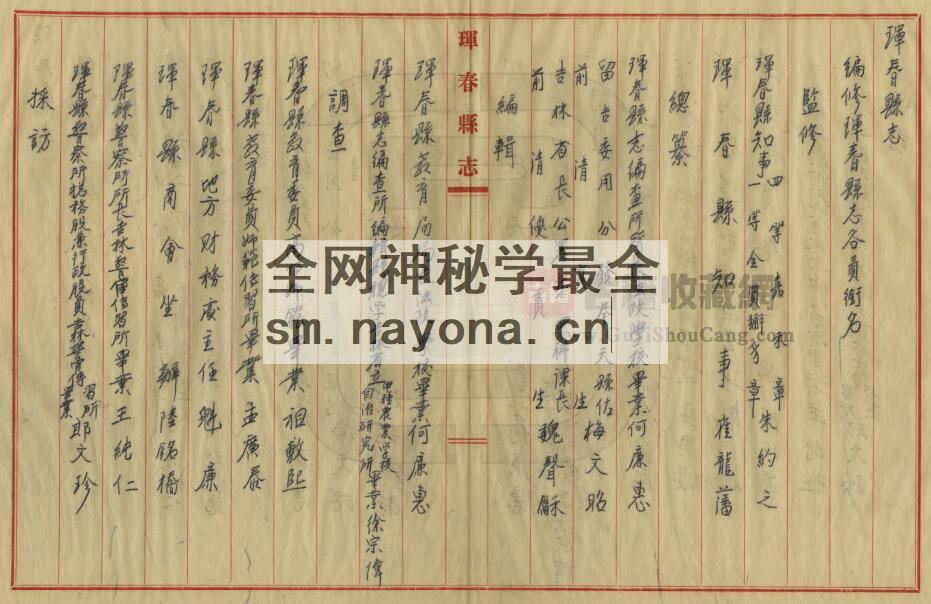 琿春縣志
編修琿春縣志各員銜名
監修
琿春縣知事四等嘉禾章一等金質獬豸章朱約之
琿春縣知事崔龍藩
總纂
琿春縣志編查所所政學校畢業何廉惠
留吉委用分縣佑梅文昭
前清生
吉林省長公科課長
前清優貢生魏聲龢
編輯
琿春縣教育局校畢業何廉惠
琿春縣志編查所編甲種農業學校自治研究所畢業徐宗偉
調查
琿春縣教育委員業祖歡熙
琿春縣教育委員師範傳習所畢業孟廣泰
琿春縣地方財務處主任魁廉
琿春縣商會坐辦陸銘橋
琿春縣警察所所長吉林警傳習所畢業王純仁
琿春縣警察所總務股兼行政股員吉林警察傳習所畢業郎文珍
採訪
琿春縣志
全网神秘学最全
sm.nayona.cn
收藏網
ShouCang.com